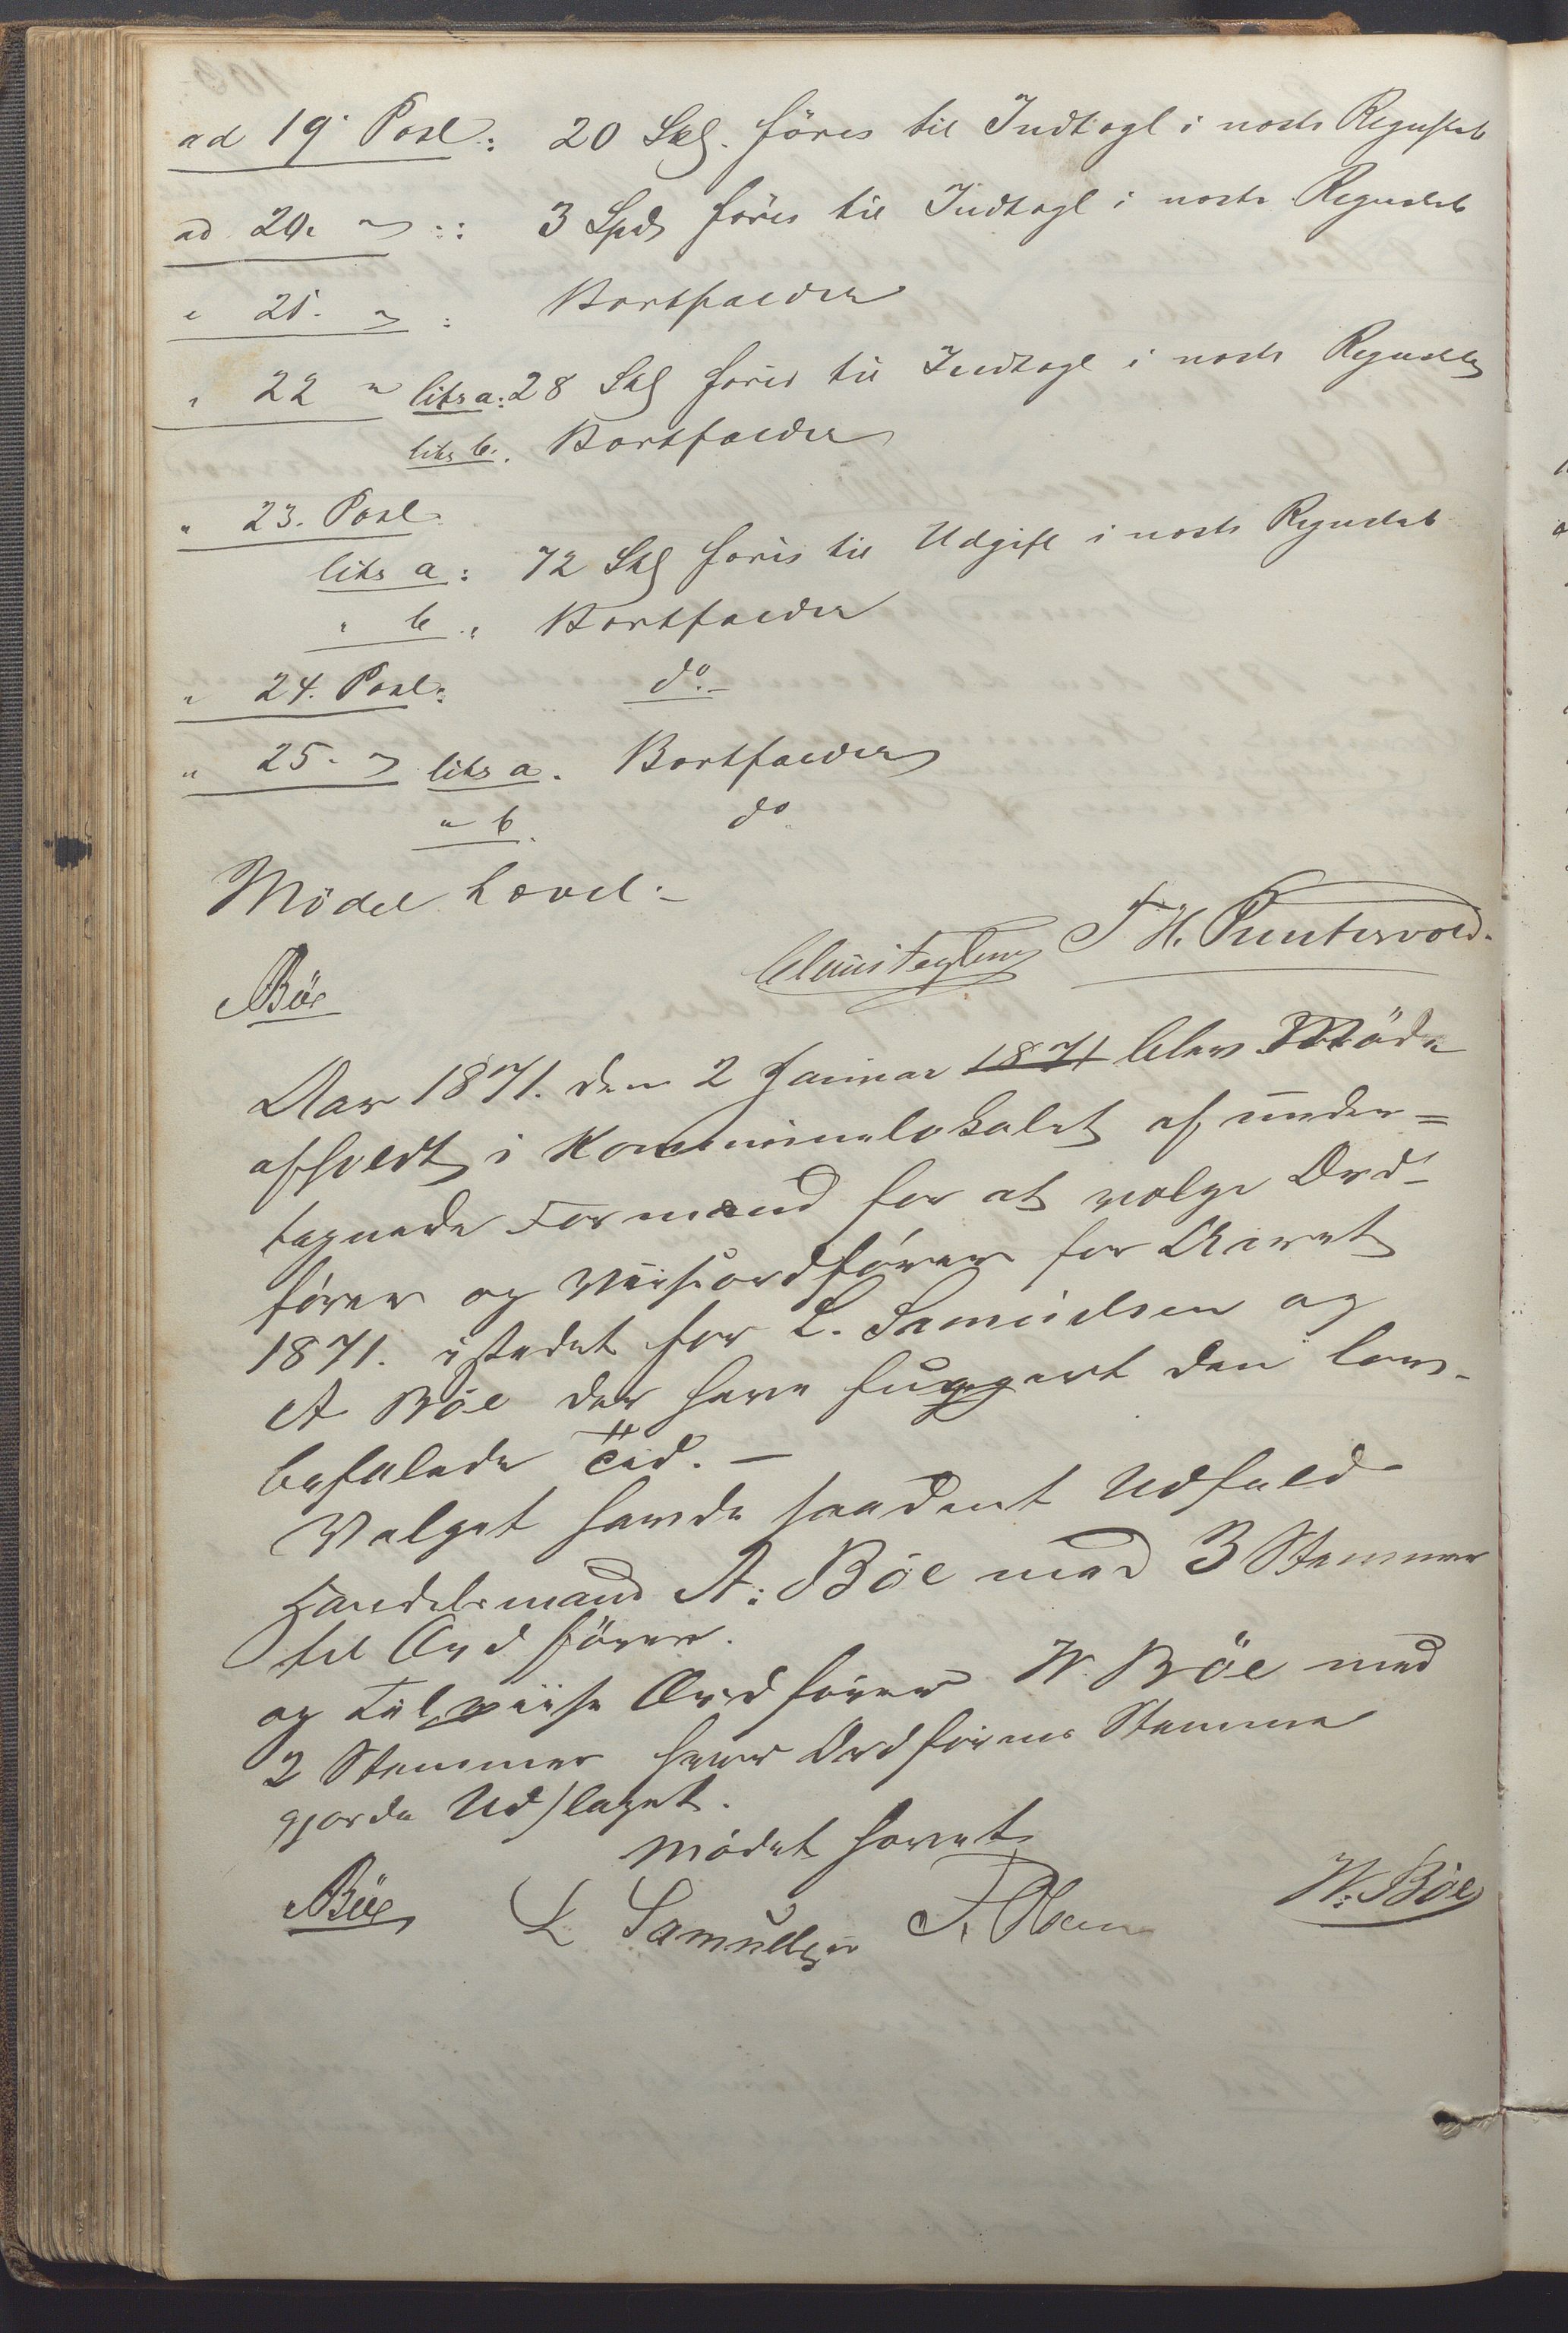 ad 19. Post: 20 Skl. føres til Indtægt i næste Regnskab
ad 20. " :: 3 Spd føres til Indtægt i næste Regnskab
" 21. " : Bortfalder
" 22 " litr a: 28 Skl føres til Indtægt i næste Regnskab
litr b. Bortfalder
" 23. Post
litr a: 72 Skl føres til Udgift i næste Regnskab
" b. Bortfalder
" 24. Post: do.-
" 25. " litr a. Bortfalder
" b. do.
Mödet hævet.-
T. H. Puntervold.
ABöe
Aar 1871. den 2 Januar 1871 blev Möde
afholdt i Kommunelokalet af under=
tegnede Formænd for at vælge Ord-
fører og Viiseordfører for Aaret
1871. istedet for L. Samuelsen og
A Böe der have fungert den lov-
befalede Tid. —
Valget havde saadant Udfald
Handelsmand A: Böe med 3 Stemmer
til Ordfører.
og til viise Ordfører W. Böe med
2 Stemmer hvor Ordførerns Stemme
gjorde Udslaget.
Mödet hævet
ABöe L Samuelsen T. Olsen W. Böe